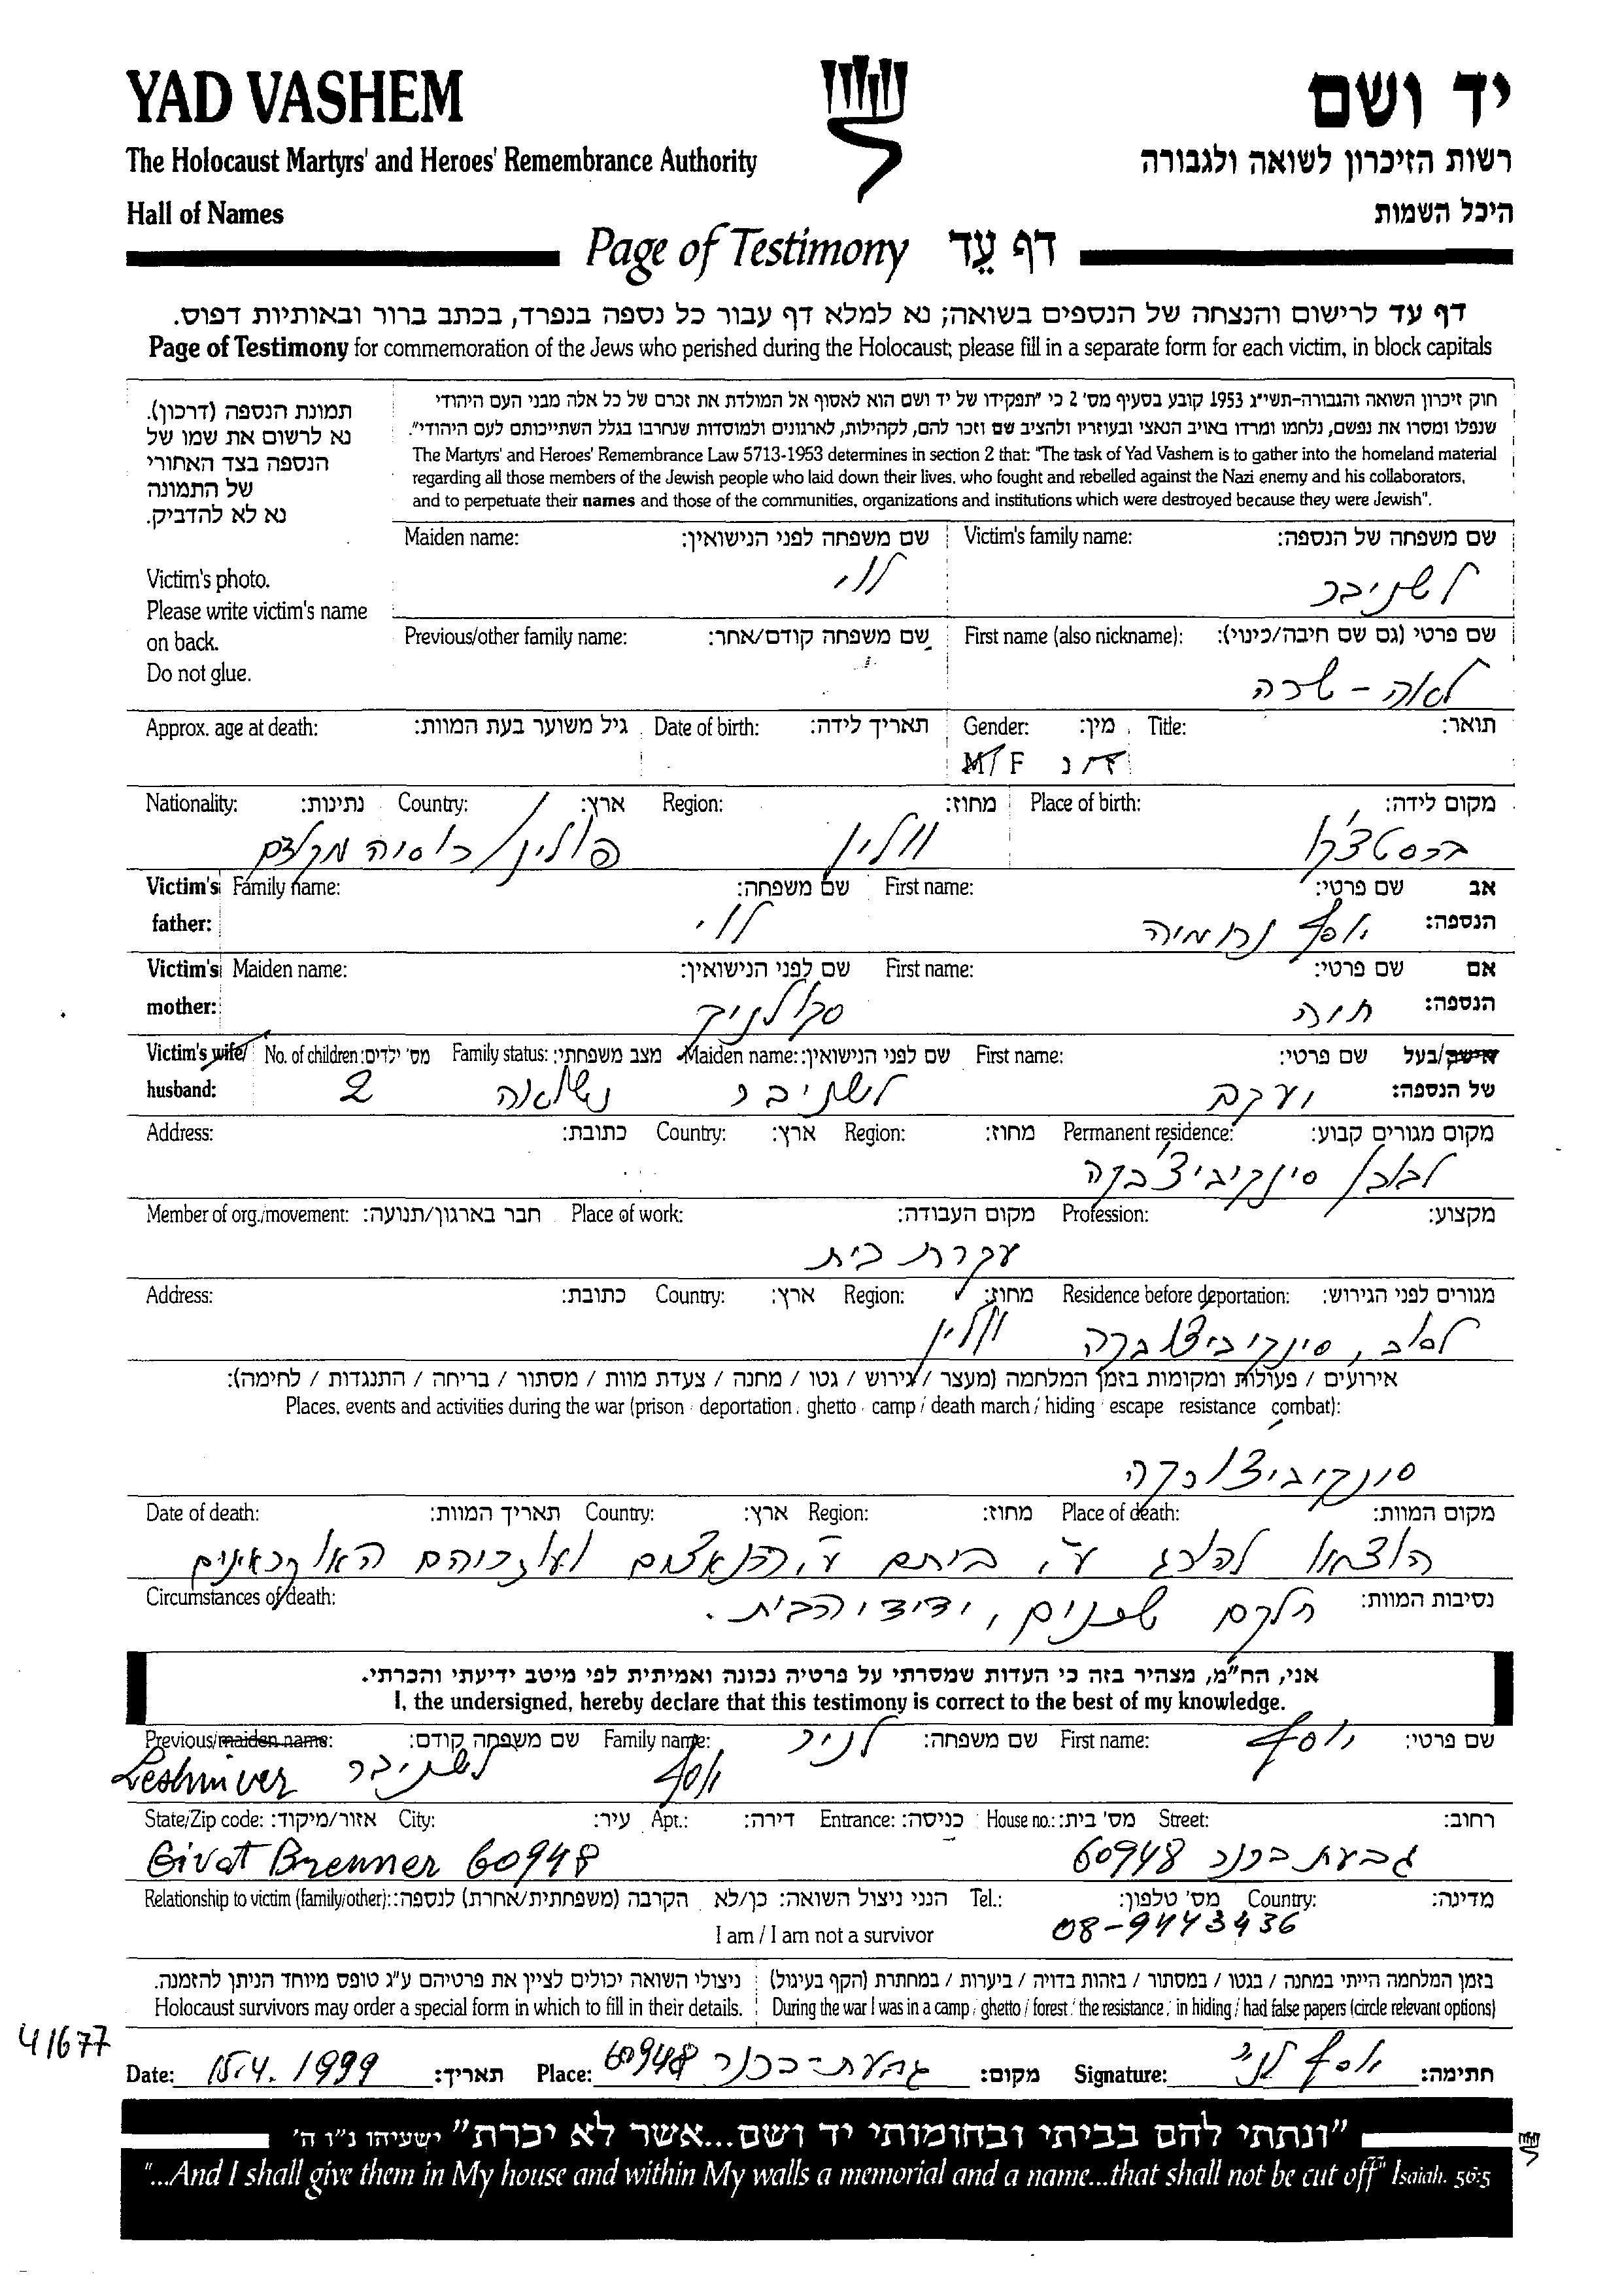 YAD VASHEM
יד ושם
The Holocaust Martyrs' and Heroes' Remembrance Authority
רשות הזיכרון לשואה ולגבורה
Hall of Names
היכל השמות
Page of Testimony דף עֵד
דף עד לרישום והנצחה של הנספים בשואה; נא למלא דף עבור כל נספה בנפרד, בכתב ברור ובאותיות דפוס.
Page of Testimony for commemoration of the Jews who perished during the Holocaust; please fill in a separate form for each victim, in block capitals
תמונת הנספה (דרכון).
נא לרשום את שמו של
הנספה בצד האחורי
של התמונה
נא לא להדביק.
Victim's photo.
Please write victim's name
on back.
Do not glue.
חוק זיכרון השואה והגבורה-תשי״ג 1953 קובע בסעיף מס׳ 2 כי ״תפקידו של יד ושם הוא לאסוף אל המולדת את זכרם של כל אלה מבני העם היהודי
שנפלו ומסרו את נפשם, נלחמו ומרדו באויב הנאצי ובעוזריו ולהציב שם וזכר להם, לקהילות, לארגונים ולמוסדות שנחרבו בגלל השתייכותם לעם היהודי״.
The Martyrs' and Heroes' Remembrance Law 5713-1953 determines in section 2 that: "The task of Yad Vashem is to gather into the homeland material
regarding all those members of the Jewish people who laid down their lives, who fought and rebelled against the Nazi enemy and his collaborators,
and to perpetuate their names and those of the communities, organizations and institutions which were destroyed because they were Jewish".
Victim's family name: שם משפחה של הנספה:
לשניבר
Maiden name: שם משפחה לפני הנישואין:
לוי
First name (also nickname): שם פרטי (גם שם חיבה/כינוי):
לאה - שרה
Previous/other family name: שם משפחה קודם/אחר:
Title: תואר:
Gender: מין:
M/F ז/נ
Date of birth: תאריך לידה:
Approx. age at death: גיל משוער בעת המוות:
Place of birth: מקום לידה:
ברסטצ'קו
Region: מחוז:
ווולין
Country: ארץ:
Nationality: נתינות:
פולין/רוסיה מקודם
Victim's father: אב הנספה:
First name: שם פרטי:
יוסף נחמיה
Family name: שם משפחה:
לוי
Victim's mother: אם הנספה:
First name: שם פרטי:
חיה
Maiden name: שם לפני הנישואין:
Victim's wife/husband: אישה/בעל של הנספה:
First name: שם פרטי:
יעקב
Maiden name: שם לפני הנישואין:
לשניבר
Family status: מצב משפחתי:
נשואה
No. of children: מס׳ ילדים:
2
Permanent residence: מקום מגורים קבוע:
Region: מחוז:
Country: ארץ:
Address: כתובת:
Profession: מקצוע:
Place of work: מקום העבודה:
עקרת בית
Member of org./movement: חבר בארגון/תנועה:
Residence before deportation: מגורים לפני הגירוש:
Region: מחוז:
ווולין
Country: ארץ:
Address: כתובת:
אירועים / פעולות ומקומות בזמן המלחמה (מעצר / גירוש / גטו / מחנה / צעדת מוות / מסתור / בריחה / התנגדות / לחימה):
Places, events and activities during the war (prison / deportation / ghetto / camp / death march / hiding / escape / resistance / combat):
Place of death: מקום המוות:
Region: מחוז:
Country: ארץ:
Date of death: תאריך המוות:
הוצאו להורג ע"י ביתם ע"י הנאצים ועוזריהם האוקראינים
Circumstances of death: נסיבות המוות:
חלקם שכנים, ידידי הבית.
אני, הח״מ, מצהיר בזה כי העדות שמסרתי על פרטיה נכונה ואמיתית לפי מיטב ידיעתי והכרתי.
I, the undersigned, hereby declare that this testimony is correct to the best of my knowledge.
First name: שם פרטי:
יוסף
Family name: שם משפחה:
לניר
יוסף
Previous/maiden name: שם משפחה קודם:
לשניבר Leshniver
Street: רחוב:
House no.: מס׳ בית:
Entrance: כניסה:
Apt.: דירה:
City: עיר:
State/Zip code: אזור/מיקוד:
גבעת ברנר 60948
Givat Brenner 60948
Country: מדינה:
Tel.: מס׳ טלפון:
08-9443436
הנני ניצול השואה: כן/לא
I am / I am not a survivor
Relationship to victim (family/other): הקרבה (משפחתית/אחרת) לנספה:
בזמן המלחמה הייתי במחנה / בגטו / במסתור / בזהות בדויה / ביערות / במחתרת (הקף בעיגול)
During the war I was in a camp / ghetto / forest / the resistance / in hiding / had false papers (circle relevant options)
ניצולי השואה יכולים לציין את פרטיהם ע״ג טופס מיוחד הניתן להזמנה.
Holocaust survivors may order a special form in which to fill in their details.
41677
Date: 15.4.1999 תאריך:
Place: גבעת-ברנר 60948 מקום:
Signature: יוסף לניר חתימה:
״ונתתי להם בביתי ובחומותי יד ושם...אשר לא יכרת״ ישעיהו נ״ו ה׳
"...And I shall give them in My house and within My walls a memorial and a name...that shall not be cut off" Isaiah. 56:5